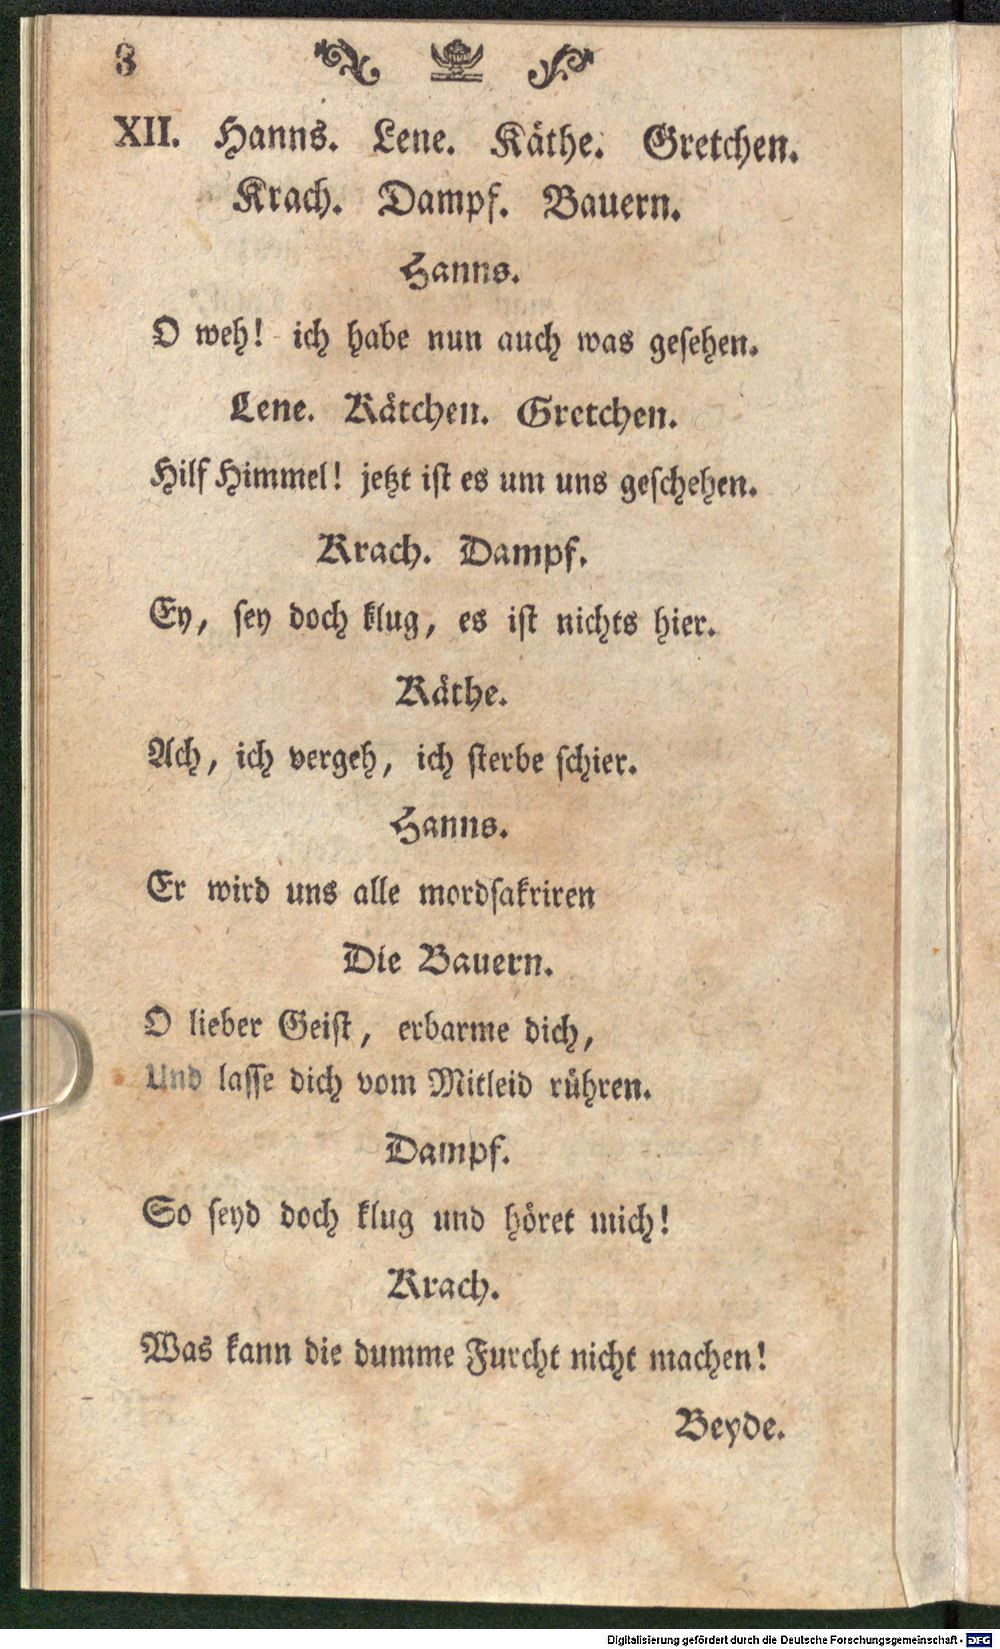 8
XII. Hanns. Lene. Käthe. Gretchen.
Krach. Dampf. Bauern.
Hanns.
O weh! ich habe nun auch was gesehen.
Lene. Kätchen. Gretchen.
Hilf Himmel! jetzt ist es um uns geschehen.
Krach. Dampf.
Ey, sey doch klug, es ist nichts hier.
Käthe.
Ach, ich vergeh, ich sterbe schier.
Hanns.
Er wird uns alle mordsakriren
Die Bauern.
O lieber Geist, erbarme dich,
Und lasse dich vom Mitleid rühren.
Dampf.
So seyd doch klug und höret mich!
Krach.
Was kann die dumme Furcht nicht machen!
Beyde.
Digitalisierung gefördert durch die Deutsche Forschungsgemeinschaft - DFG